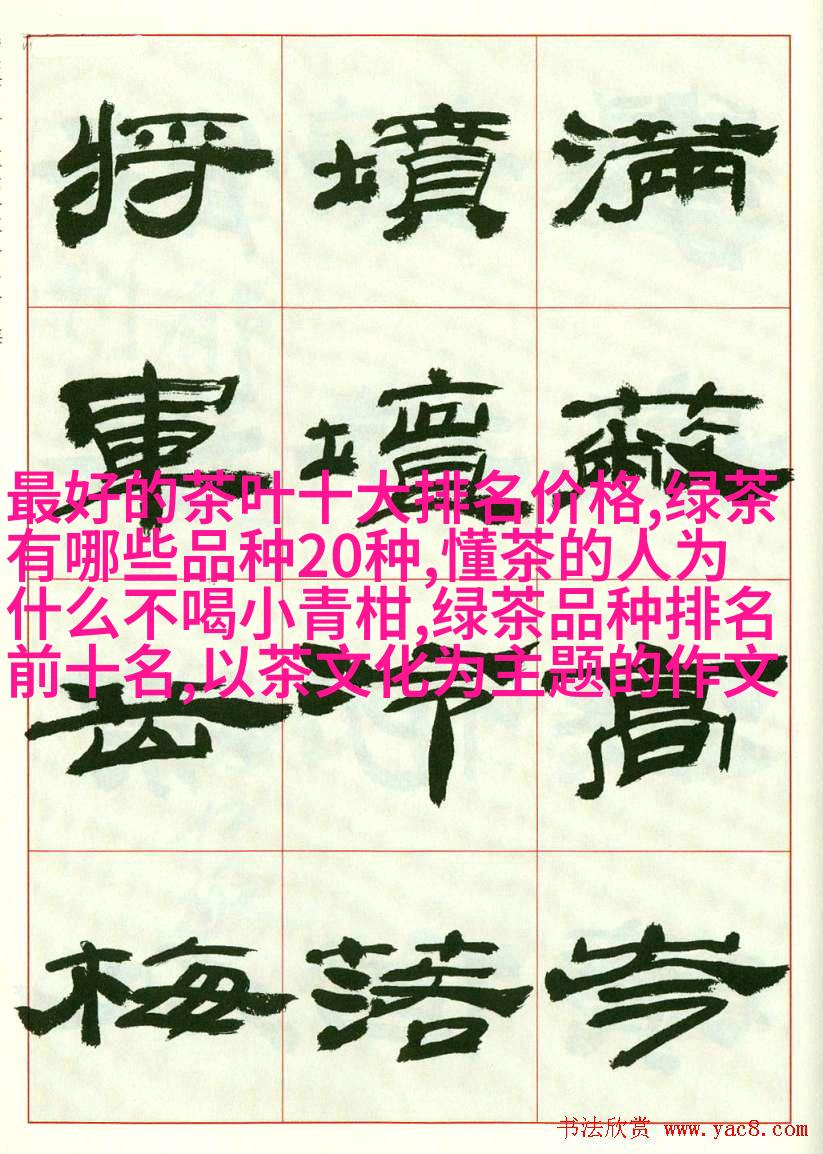 满蔽高岑
墳壇落
将軍梅
最好的茶叶十大排名价格,绿茶
有哪些品种20种,懂茶的人为
什么不喝小青柑,绿茶品种排名
前十名,以茶文化为主题的作文
书法欣赏 www.yac8.com